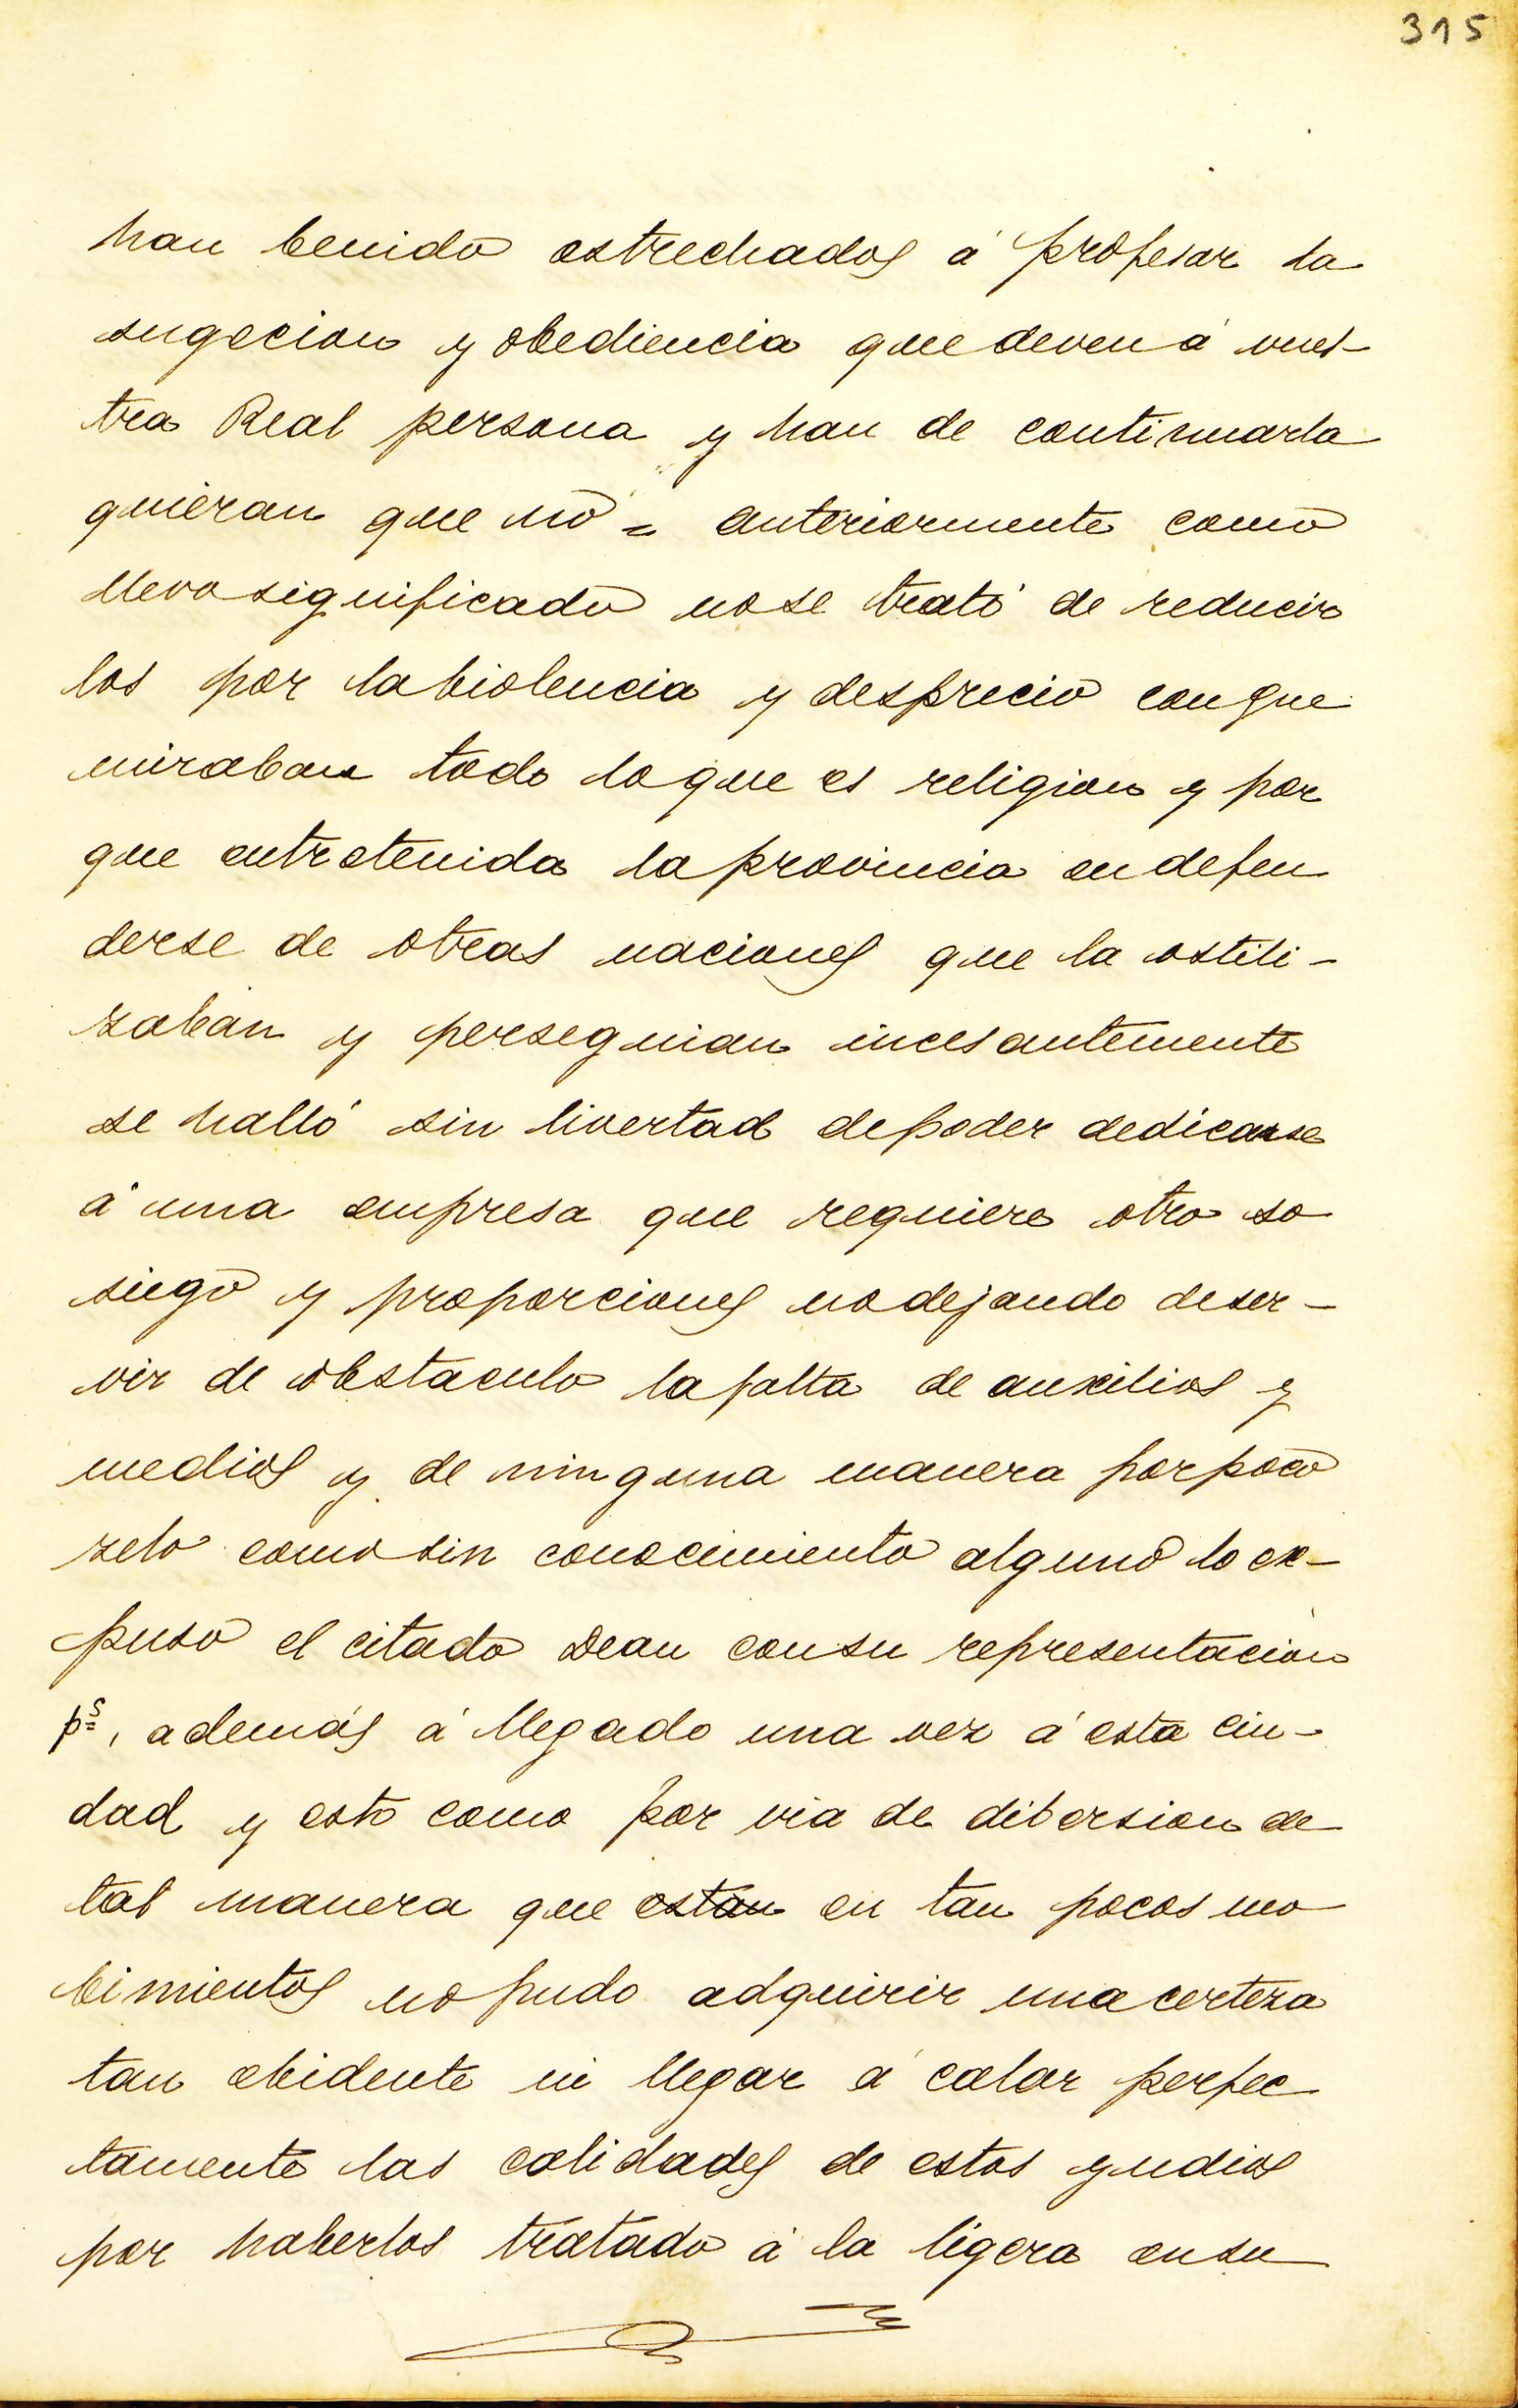 315
han benido estrechados á profesar la
sugecion y obediencia que deven á vues-
tra Real persona y han de continuarla
quieran que no = anteriormente como
llevo significado no se trató de reducir
los por la biolencia y desprecio con que
miraban todo lo que es religion y por
que entretenida la provincia en defen
derse de otras naciones que la ostili-
zaban y perseguian incesantemente
se halló sin livertad de poder dedicarse
á una empresa que requiere otro so
siego y proporciones no dejando de ser-
vir de obstaculo la falta de auxilios y
medios y de ninguna manera por poco
zelo como sin conocimiento alguno lo ex-
puso el citado Dean con su representacion
ps, además á llegado una vez á esta ciu-
dad y esto como por via de dibersion de
tal manera que estan en tan pocos mo
bimientos no pudo adquirir una certeza
tan ebidente ni llegar á calar perfec
tamente las calidades de estos yndios
por haberlos tratado á la ligera en su